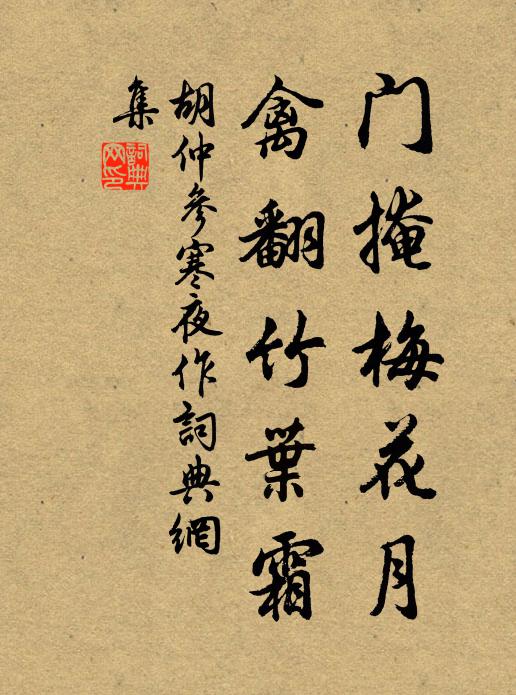 门掩梅花月
禽翻竹葉霜
胡仲參寒夜作詞典網
集
詞典網印